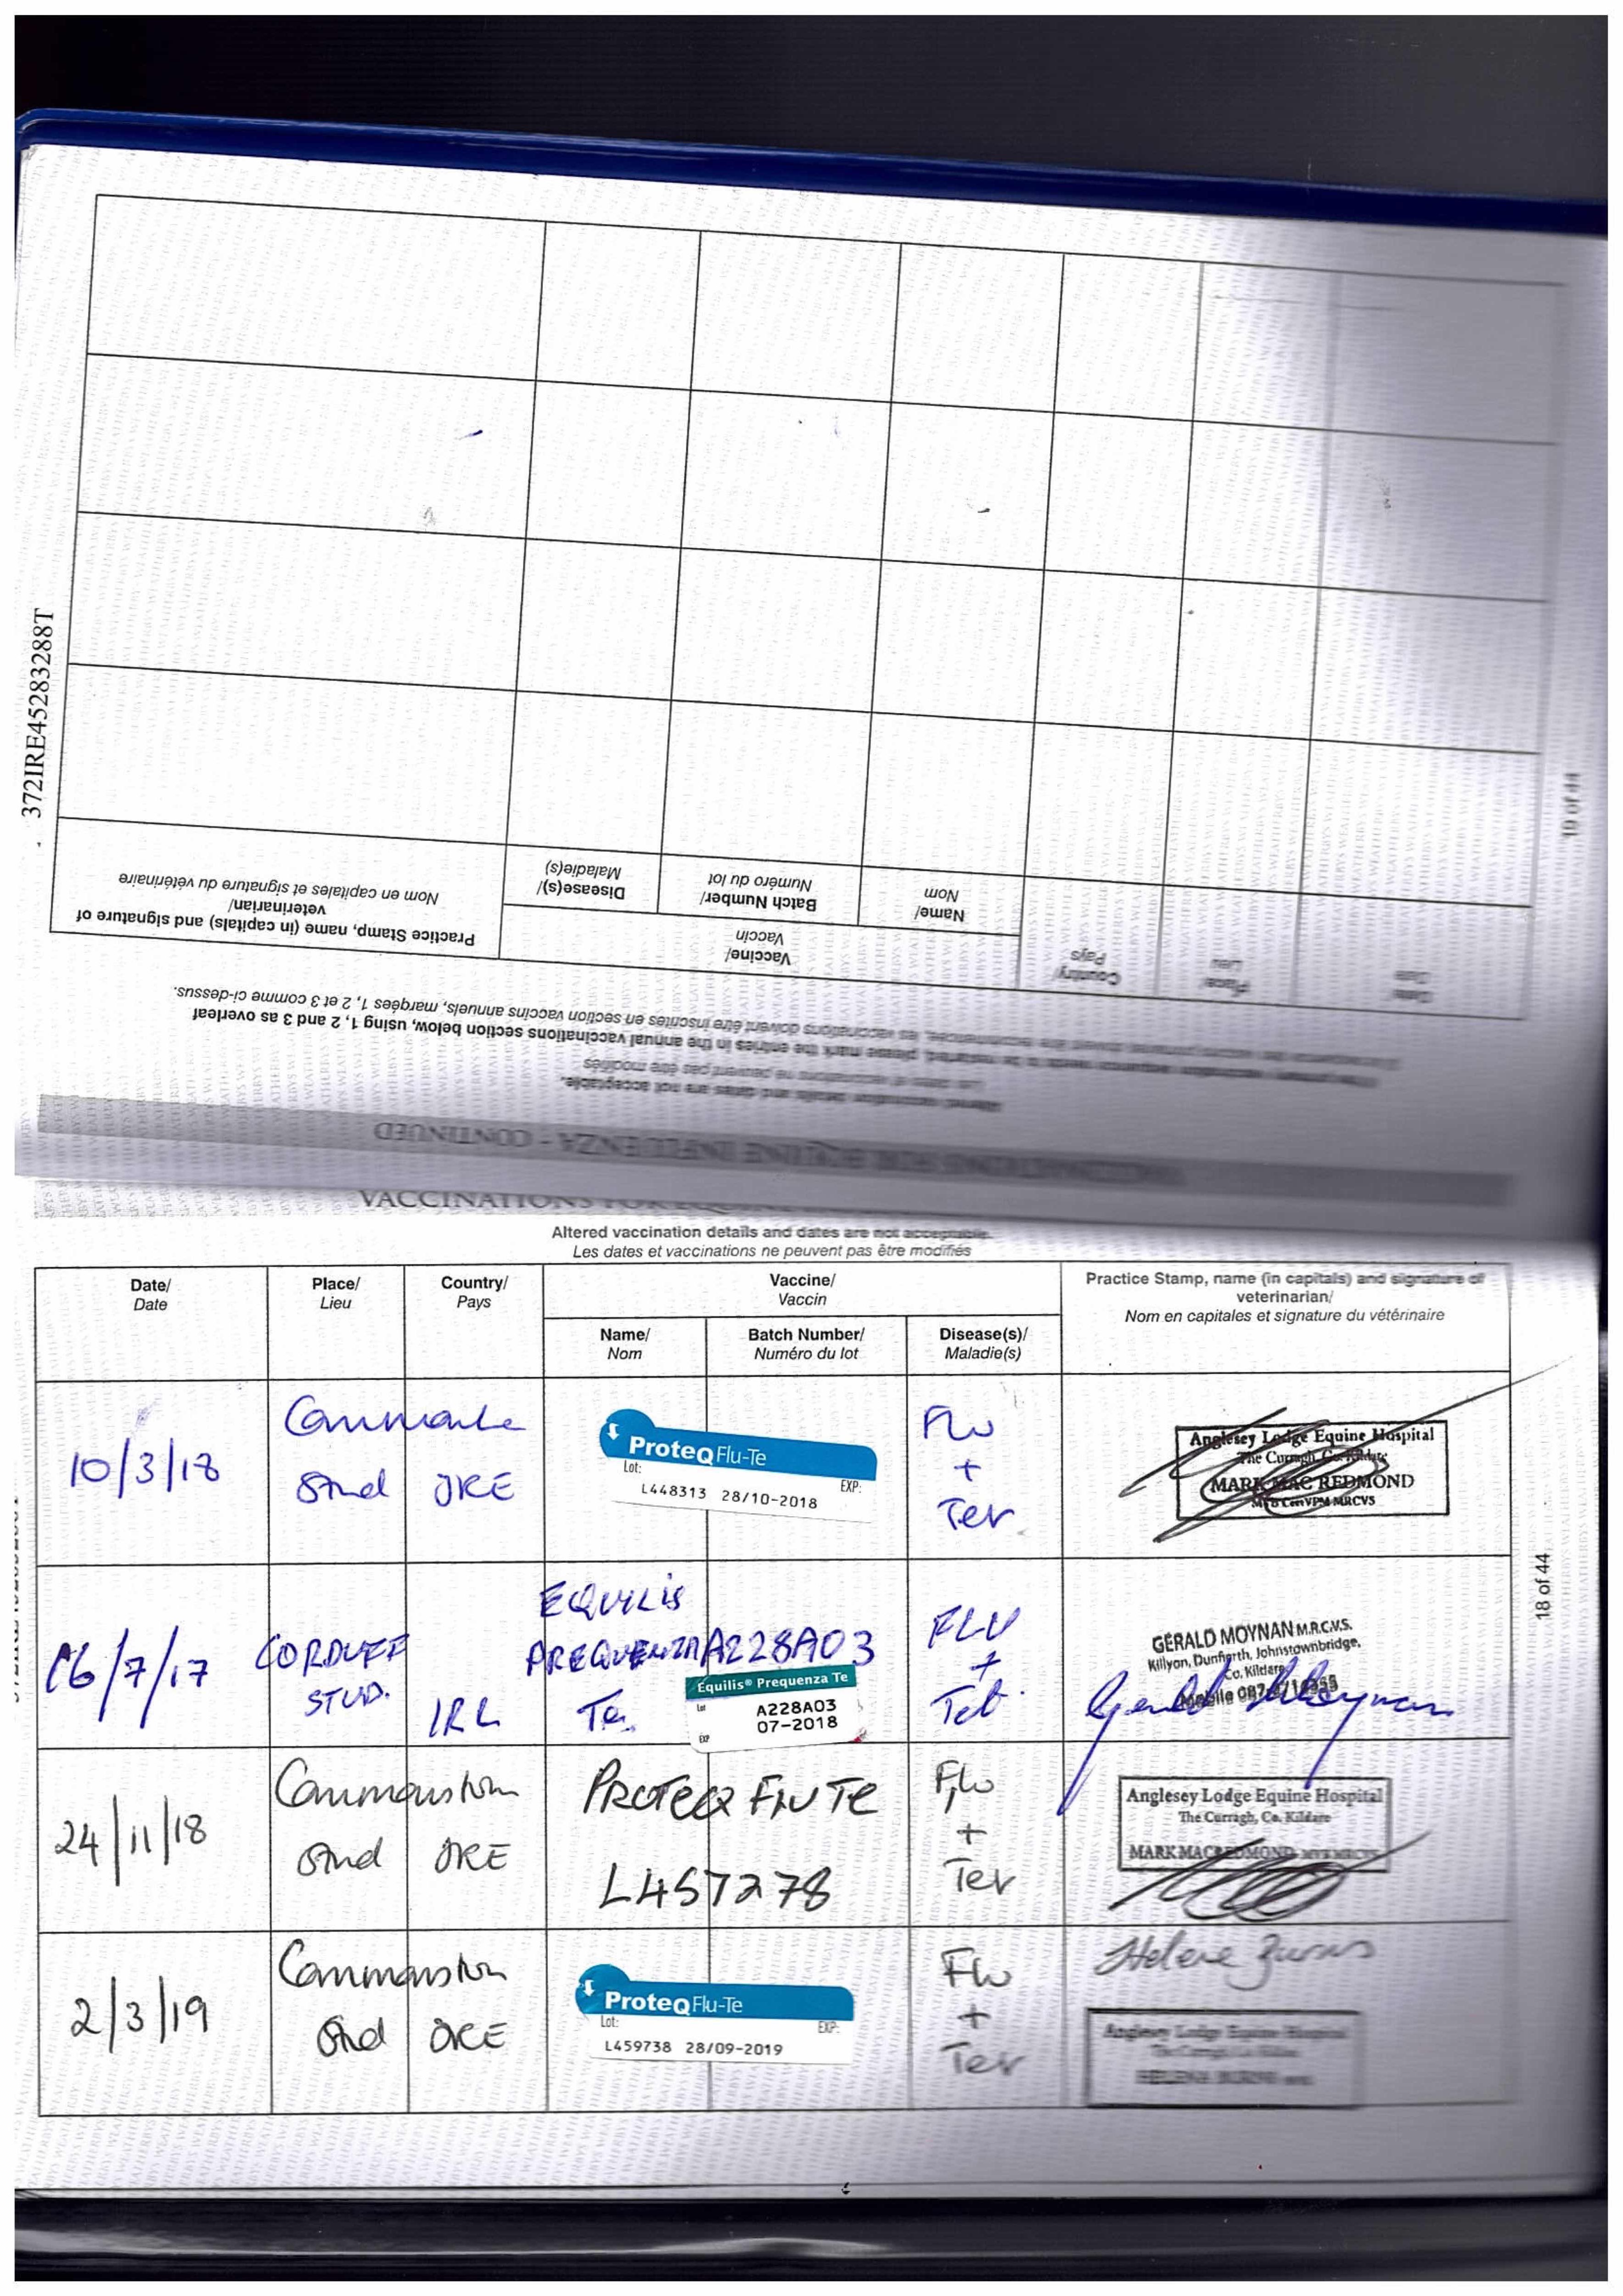 372IRE45283288T
19 of 44
VACCINATIONS FOR EQUINE INFLUENZA - CONTINUED
Altered vaccination details and dates are not acceptable.
Les dates et vaccinations ne peuvent pas être modifiés
please mark the entries in the annual vaccinations section below, using 1, 2 and 3 as overleaf
les vaccinations doivent être inscrites en section vaccins annuels, marqées 1, 2 et 3 comme ci-dessus.
Date/
Date
Place/
Lieu
Country/
Pays
Vaccine/
Vaccin
Name/
Nom
Batch Number/
Numéro du lot
Disease(s)/
Maladie(s)
Practice Stamp, name (in capitals) and signature of
veterinarian/
Nom en capitales et signature du vétérinaire
VACCINATIONS FOR
Altered vaccination details and dates are not acceptable.
Les dates et vaccinations ne peuvent pas être modifiés
Date/
Date
Place/
Lieu
Country/
Pays
Vaccine/
Vaccin
Name/
Nom
Batch Number/
Numéro du lot
Disease(s)/
Maladie(s)
Practice Stamp, name (in capitals) and signature of
veterinarian/
Nom en capitales et signature du vétérinaire
10/3/18
Stud
IRE
ProteqFlu-Te
Lot:
EXP:
L448313 28/10-2018
Flu
+
Tet
Anglesey Lodge Equine Hospital
The Curragh, Co. Kildare
MARK MAC REDMOND
MVB CertVPM MRCVS
16/7/17
CORDUFF
STUD.
IRL
EQUILIS
PREQUENZA
Te
A228A03
Equilis® Prequenza Te
Lot
A228A03
07-2018
EXP
FLU
+
Tet
GERALD MOYNAN M.R.C.V.S.
Killyon, Dunfierth, Johnstownbridge,
Co. Kildare
Mobile 087
Gerald Moynan
18 of 44
24/11/18
Commonstown
Stud
IRE
PROTEQ FLU TE
L457278
Flu
+
Tet
Anglesey Lodge Equine Hospital
The Curragh, Co. Kildare
MARK MACREDMOND MVB MRCVS
2/3/19
Commonstown
Stud
IRE
ProteqFlu-Te
Lot:
EXP:
L459738 28/09-2019
Flu
+
Tet
Anglesey Lodge Equine Hospital
The Curragh, Co. Kildare
HELENA BURNS